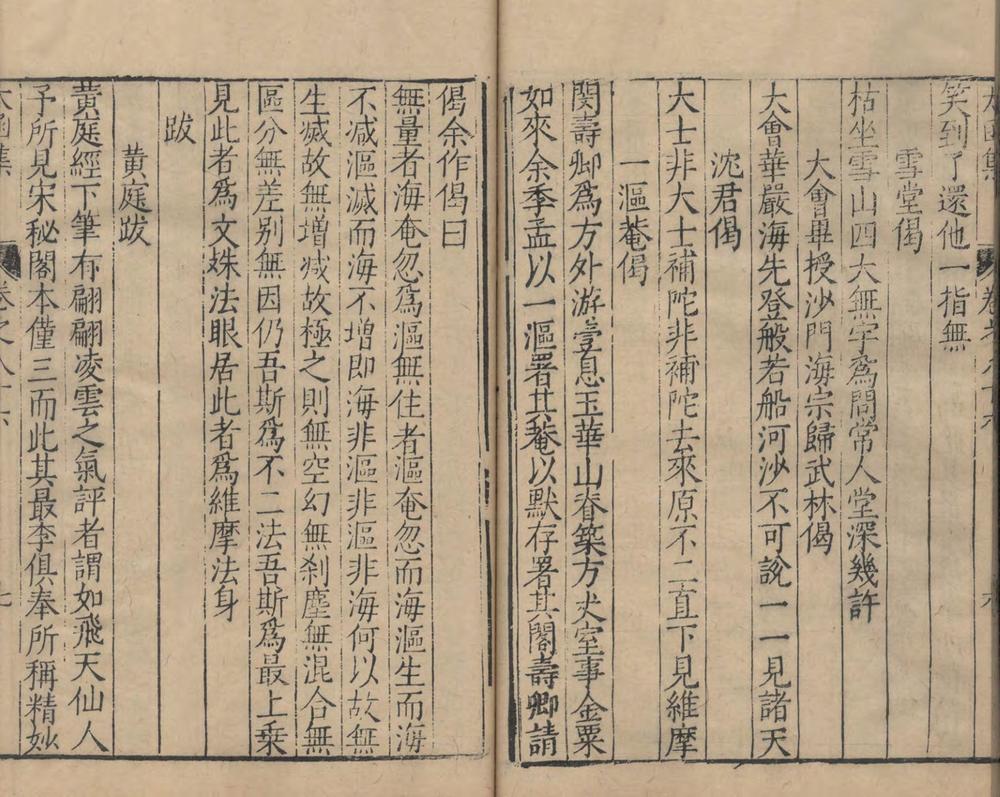 笑到了還他一指無
雪堂偈
枯坐雪山四大無字爲問常人堂深幾許
大會畢授沙門海宗歸武林偈
大會華嚴海先登般若船河沙不可說一一見諸天
沈君偈
大士非大士補陀非補陀去來原不二直下見維摩
一漚菴偈
閔壽卿爲方外游臺息玉華山脊築方丈室事金粟
如來余季孟以一漚署其菴以默存署其閣壽卿請
偈余作偈曰
無量者海奄忽爲漚無住者漚奄忽而海漚生而海
不減漚滅而海不增即海非漚非漚非海何以故無
生滅故無增減故極之則無空幻無刹塵無混合無
區分無差別無因仍吾斯爲不二法吾斯爲最上乘
見此者爲文姝法眼居此者爲維摩法身
跋
黃庭跋
黃庭經下筆有翩翩凌雲之氣評者謂如飛天仙人
予所見宋秘閣本僅三而此其最李俱奉所稱精妙
太函集 卷之八十六 七